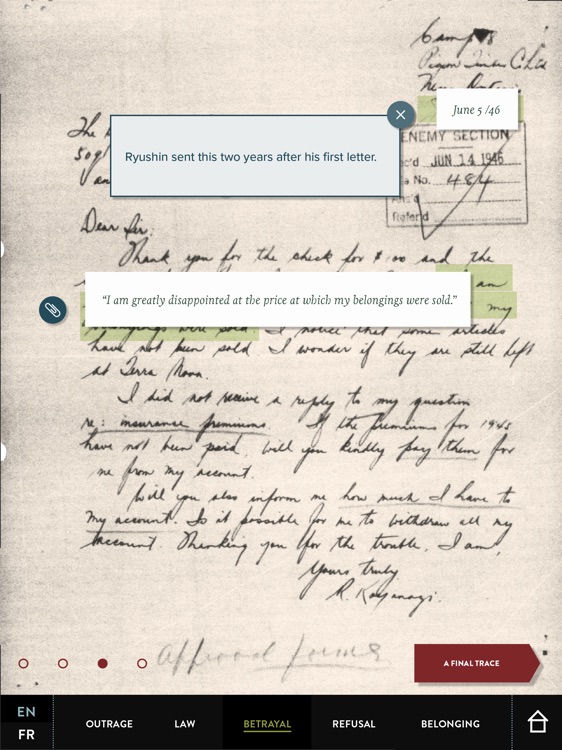 Camp
New
June 5 /46
The
ENEMY SECTION
Rec'd JUN 14 1946
No. 484
Ans'd
Refer'd
Ryushin sent this two years after his first letter.
Dear Sir:
Thank you for the check for $ and the
am
“I am greatly disappointed at the price at which my belongings were sold.”
my
belongings were sold. I notice that some articles
have not been sold I wonder if they are still left
at Terra Nova.
I did not receive a reply to my question
re: insurance premiums. If the premiums for 1945
have not been paid, will you kindly pay them for
me from my account.
Will you also inform me how much I have to
my account. Is it possible for me to withdraw all my
account. Thanking you for the trouble, I am,
Yours truly
R. Koyanagi.
A FINAL TRACE
EN
FR
OUTRAGE
LAW
BETRAYAL
REFUSAL
BELONGING